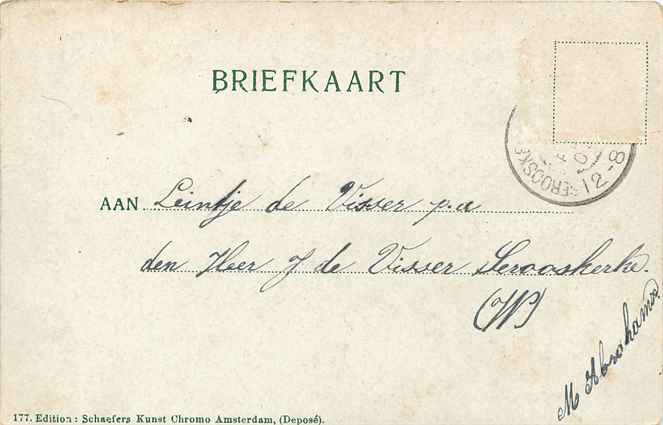 BRIEFKAART
EROOSKE
12-8
AAN Leintje de Visser p.a
den Heer J de Visser Serooskerke.
(W)
M Abrahamse
177. Edition: Schaefers Kunst Chromo Amsterdam, (Deposé).